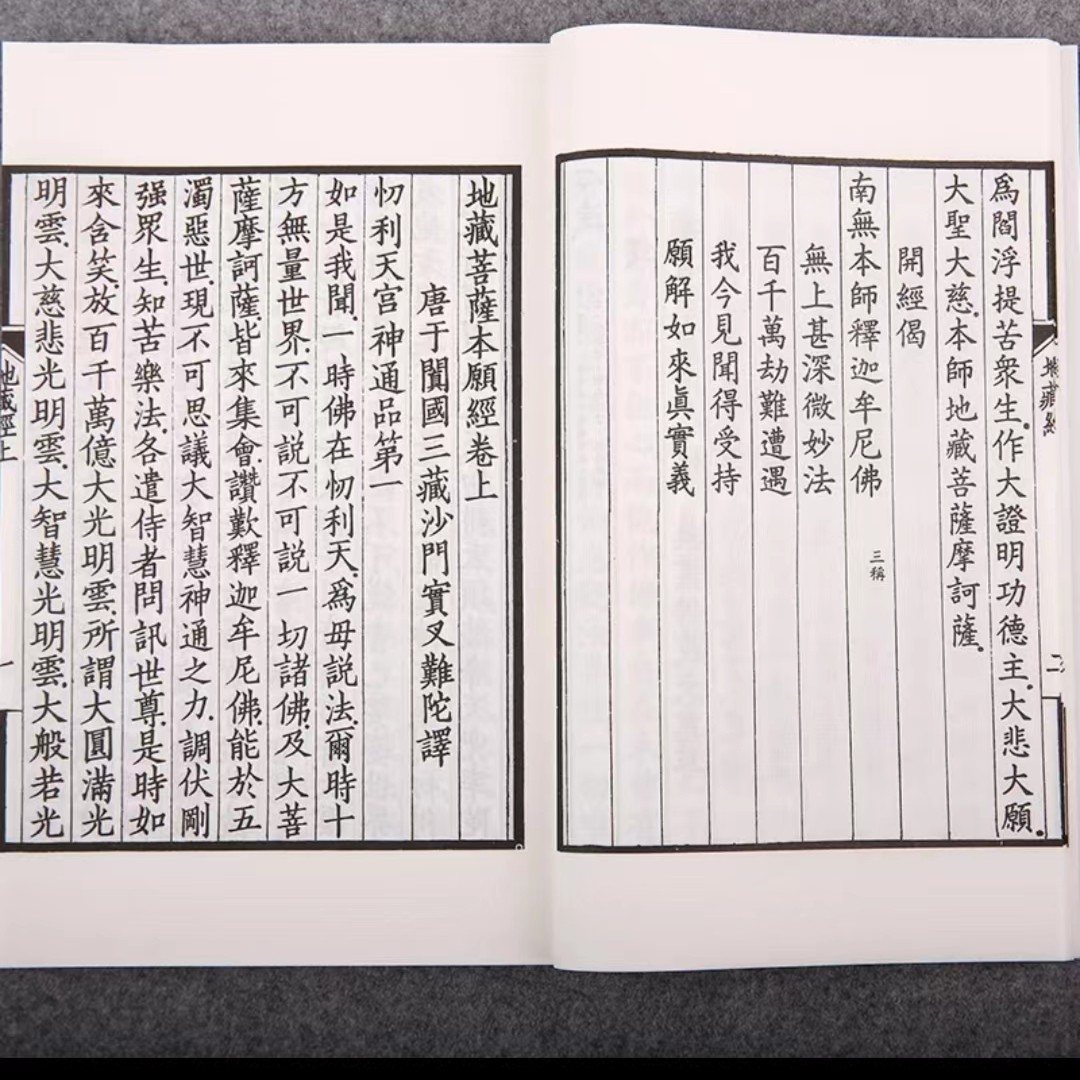 爲閻浮提苦衆生.作大證明功德主.大悲大願.
大聖大慈.本師地藏菩薩摩訶薩.
開經偈
南無本師釋迦牟尼佛 三稱
無上甚深微妙法
百千萬劫難遭遇
我今見聞得受持
願解如來眞實義
地藏菩薩本願經卷上
唐于闐國三藏沙門實叉難陀譯
忉利天宮神通品第一
如是我聞.一時佛在忉利天.爲母說法.爾時十
方無量世界.不可說不可說一切諸佛.及大菩
薩摩訶薩.皆來集會.讚歎釋迦牟尼佛.能於五
濁惡世.現不可思議大智慧神通之力.調伏剛
强眾生.知苦樂法.各遣侍者問訊世尊.是時如
來含笑.放百千萬億大光明雲.所謂大圓滿光
明雲.大慈悲光明雲.大智慧光明雲.大般若光
地藏經上
一
地藏經
二